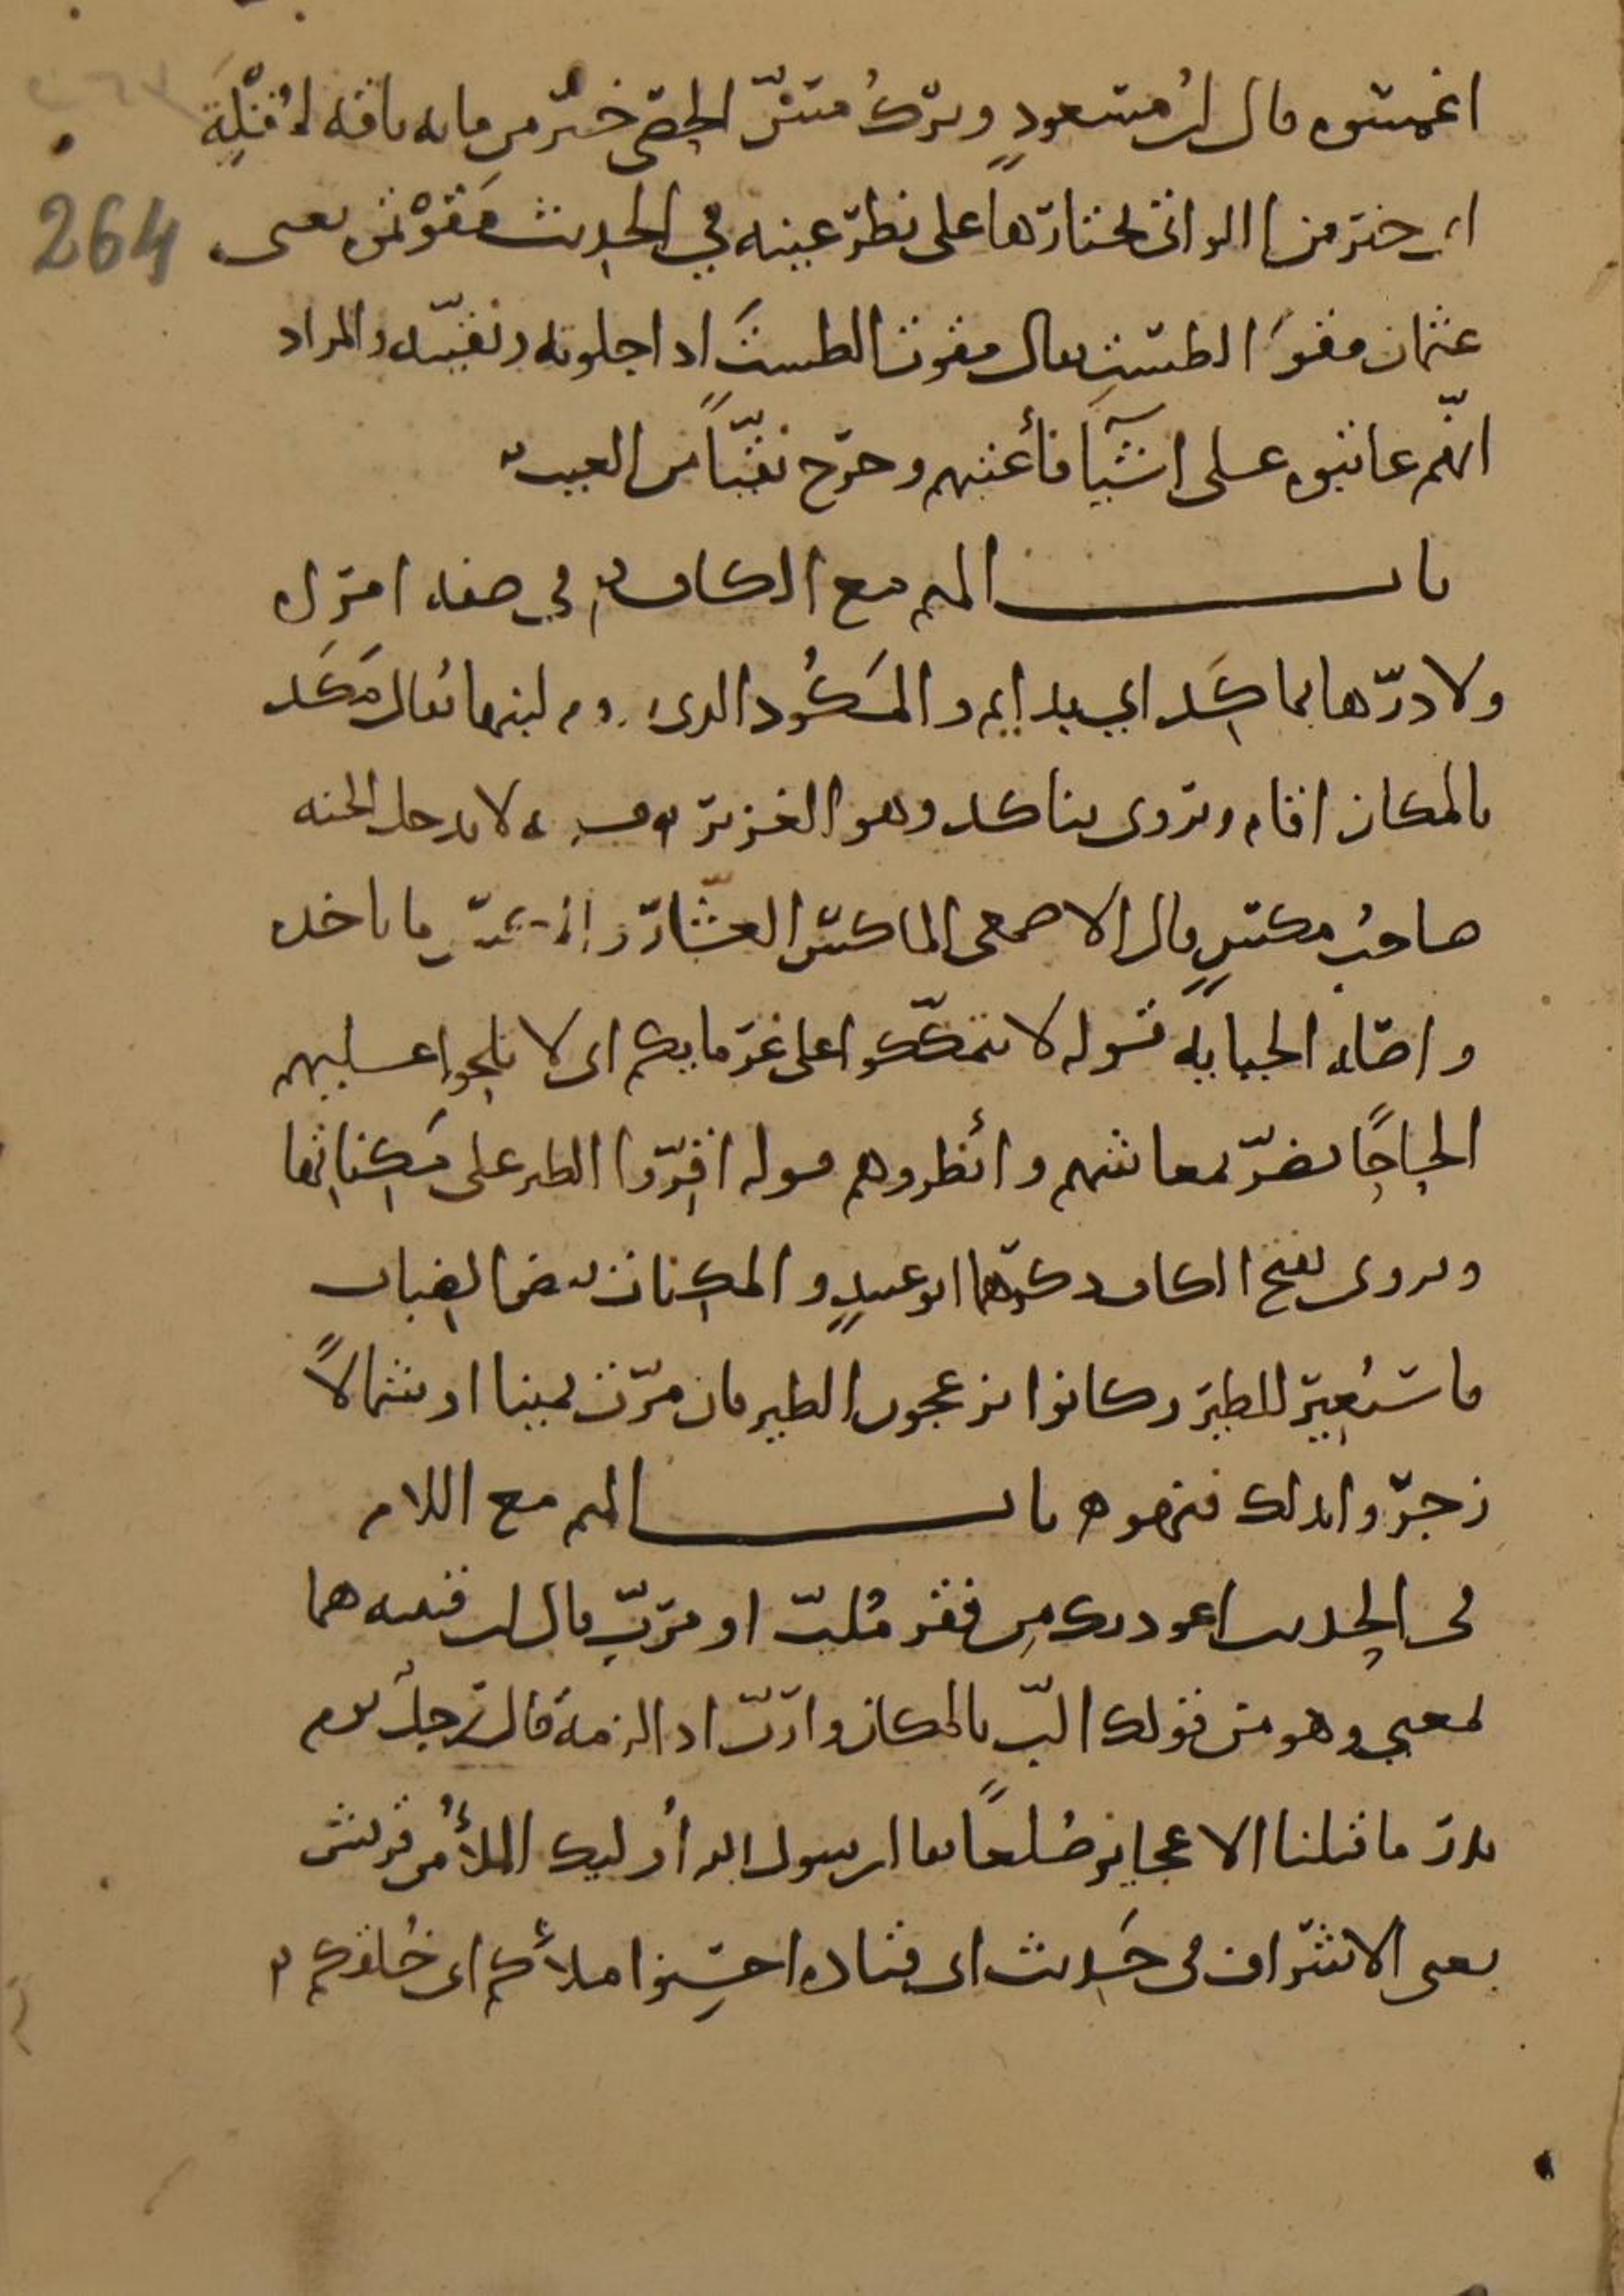 اغمسوه قال ابن مسعودٍ وترك مسّ الحصى خيرٌ من مايه ناقه لمُقْلَةٍ
264
اي خير من الوان تختارها على نظر عينه في الحديث مَقَوْتموه يعنى
عثمان مقوَ الطستِ يقال مقوت الطستَ اذا جلوته ونقيته والمراد
انهم عاتبوه على اشيآ فأعتبهم وخرج نقيّاً من العيب
باب الميم مع الكاف في صفه امرآه
ولا درّها بماكَد اي بدايم والمَكُود الذى لبنها يقال مَكَد
بالمكان اقام وتروى بناكد وهو الغزير لا يدخل الجنه
صاحبُ مكسٍ قال الاصمعى الماكس العشّار ما ياخذه
واصله الجبايه قوله لا تمكّكوا على غرمايكم اى لا تلحوا عليهم
الحاحًا يضرّ بمعاشهم وأنظروهم قوله اقِرّوا الطير على مَكِناتها
ويروى بفتح الكاف ابو عبيدٍ والمكنات بيض الضباب
فاستُعِيرَ للطير وكانوا يزعجون الطير فان مرّت يمينا او شمالاً
زجروا بذلك فنهوه باب الميم مع اللام
فى الحديث اعوذ بك من فقر مُلبّ او مربّ قال ابن قتيبه هما
بمعنى وهو من قولك البّ بالمكان وارَبّ اذا لزمه قال رجلٌ يوم
بدر ما قتلنا الا عجايز صُلعاً فقال رسول الله أوليك الملأُ من قريش
يعنى الاشراف فى حَديث ابى قتاده احسِنوا ملأكم اى خُلقكم